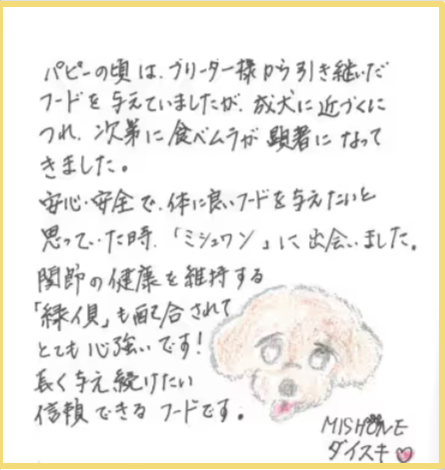 パピーの頃は、ブリーダー様から引き継いだ
フードを与えていましたが、成犬に近づくに
つれ、次第に食べムラが顕著になって
きました。
安心・安全で、体に良いフードを与えたいと
思っていた時、「ミシュワン」に出会いました。
関節の健康を維持する
「緑イ貝」も配合されて
とても心強いです!
長く与え続けたい
信頼できるフードです。
MISHONE
ダイスキ